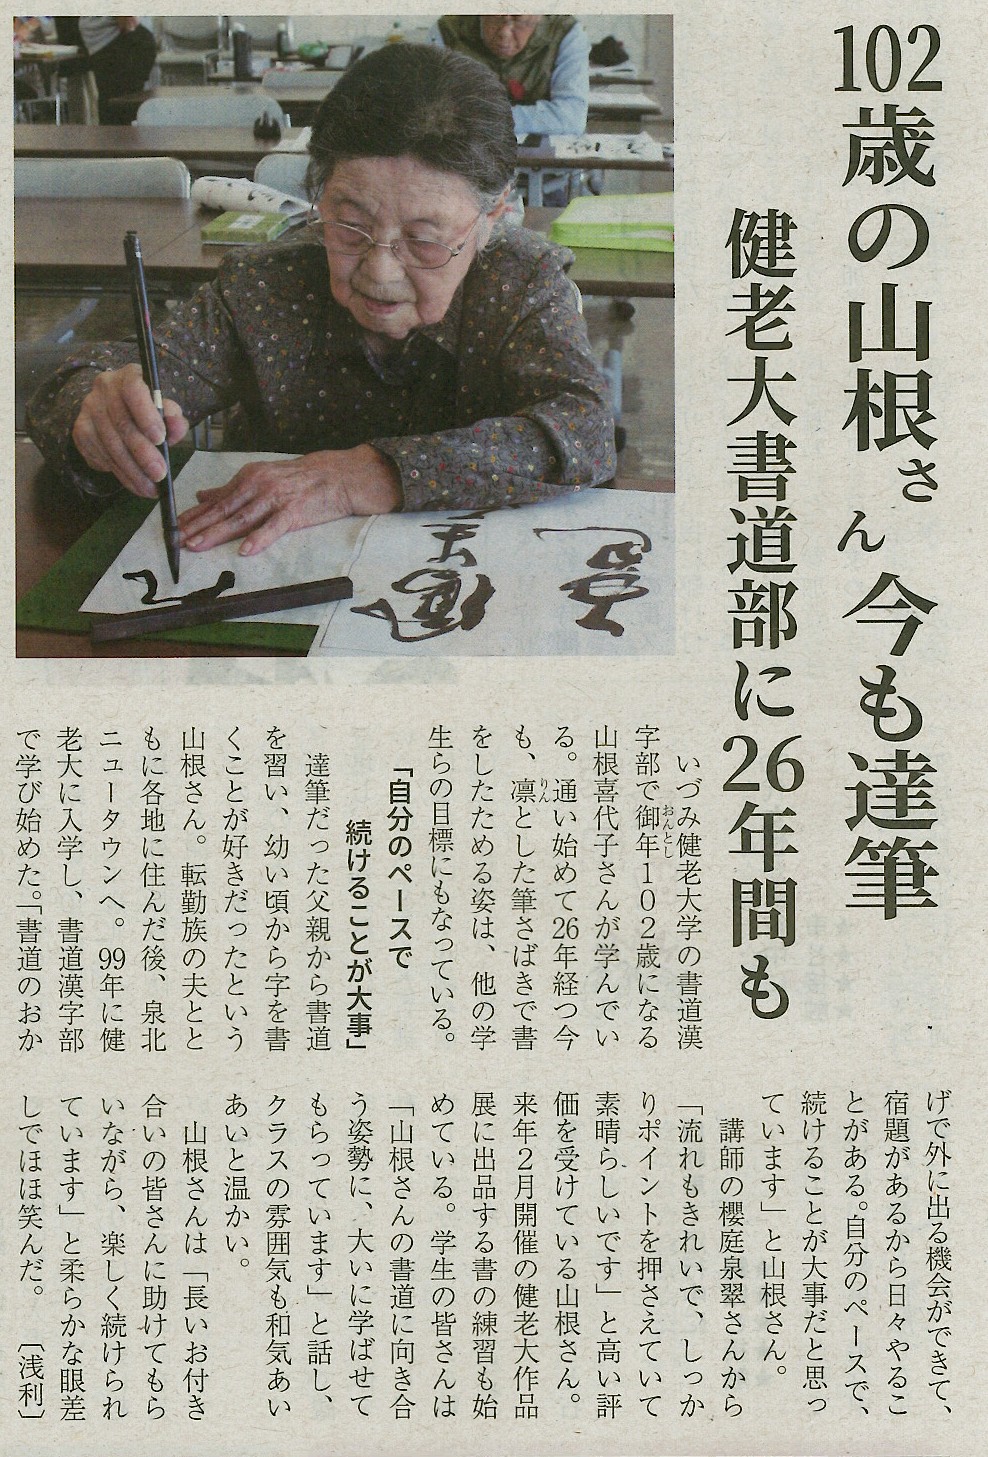 102歳の山根さん 今も達筆
健老大書道部に26年間も
いづみ健老大学の書道漢
字部で御年１０２歳になる
山根喜代子さんが学んでい
る。通い始めて26年経つ今
も、凛とした筆さばきで書
をしたためる姿は、他の学
生らの目標にもなっている。
「自分のペースで
続けることが大事」
達筆だった父親から書道
を習い、幼い頃から字を書
くことが好きだったという
山根さん。転勤族の夫とと
もに各地に住んだ後、泉北
ニュータウンへ。99年に健
老大に入学し、書道漢字部
で学び始めた。「書道のおか
げで外に出る機会ができて、
宿題があるから日々やるこ
とがある。自分のペースで、
続けることが大事だと思っ
ています」と山根さん。
講師の櫻庭泉翠さんから
「流れもきれいで、しっか
りポイントを押さえていて
素晴らしいです」と高い評
価を受けている山根さん。
来年２月開催の健老大作品
展に出品する書の練習も始
めている。学生の皆さんは
「山根さんの書道に向き合
う姿勢に、大いに学ばせて
もらっています」と話し、
クラスの雰囲気も和気あい
あいと温かい。
山根さんは「長いお付き
合いの皆さんに助けてもら
いながら、楽しく続けられ
ています」と柔らかな眼差
しでほほ笑んだ。〔浅利〕